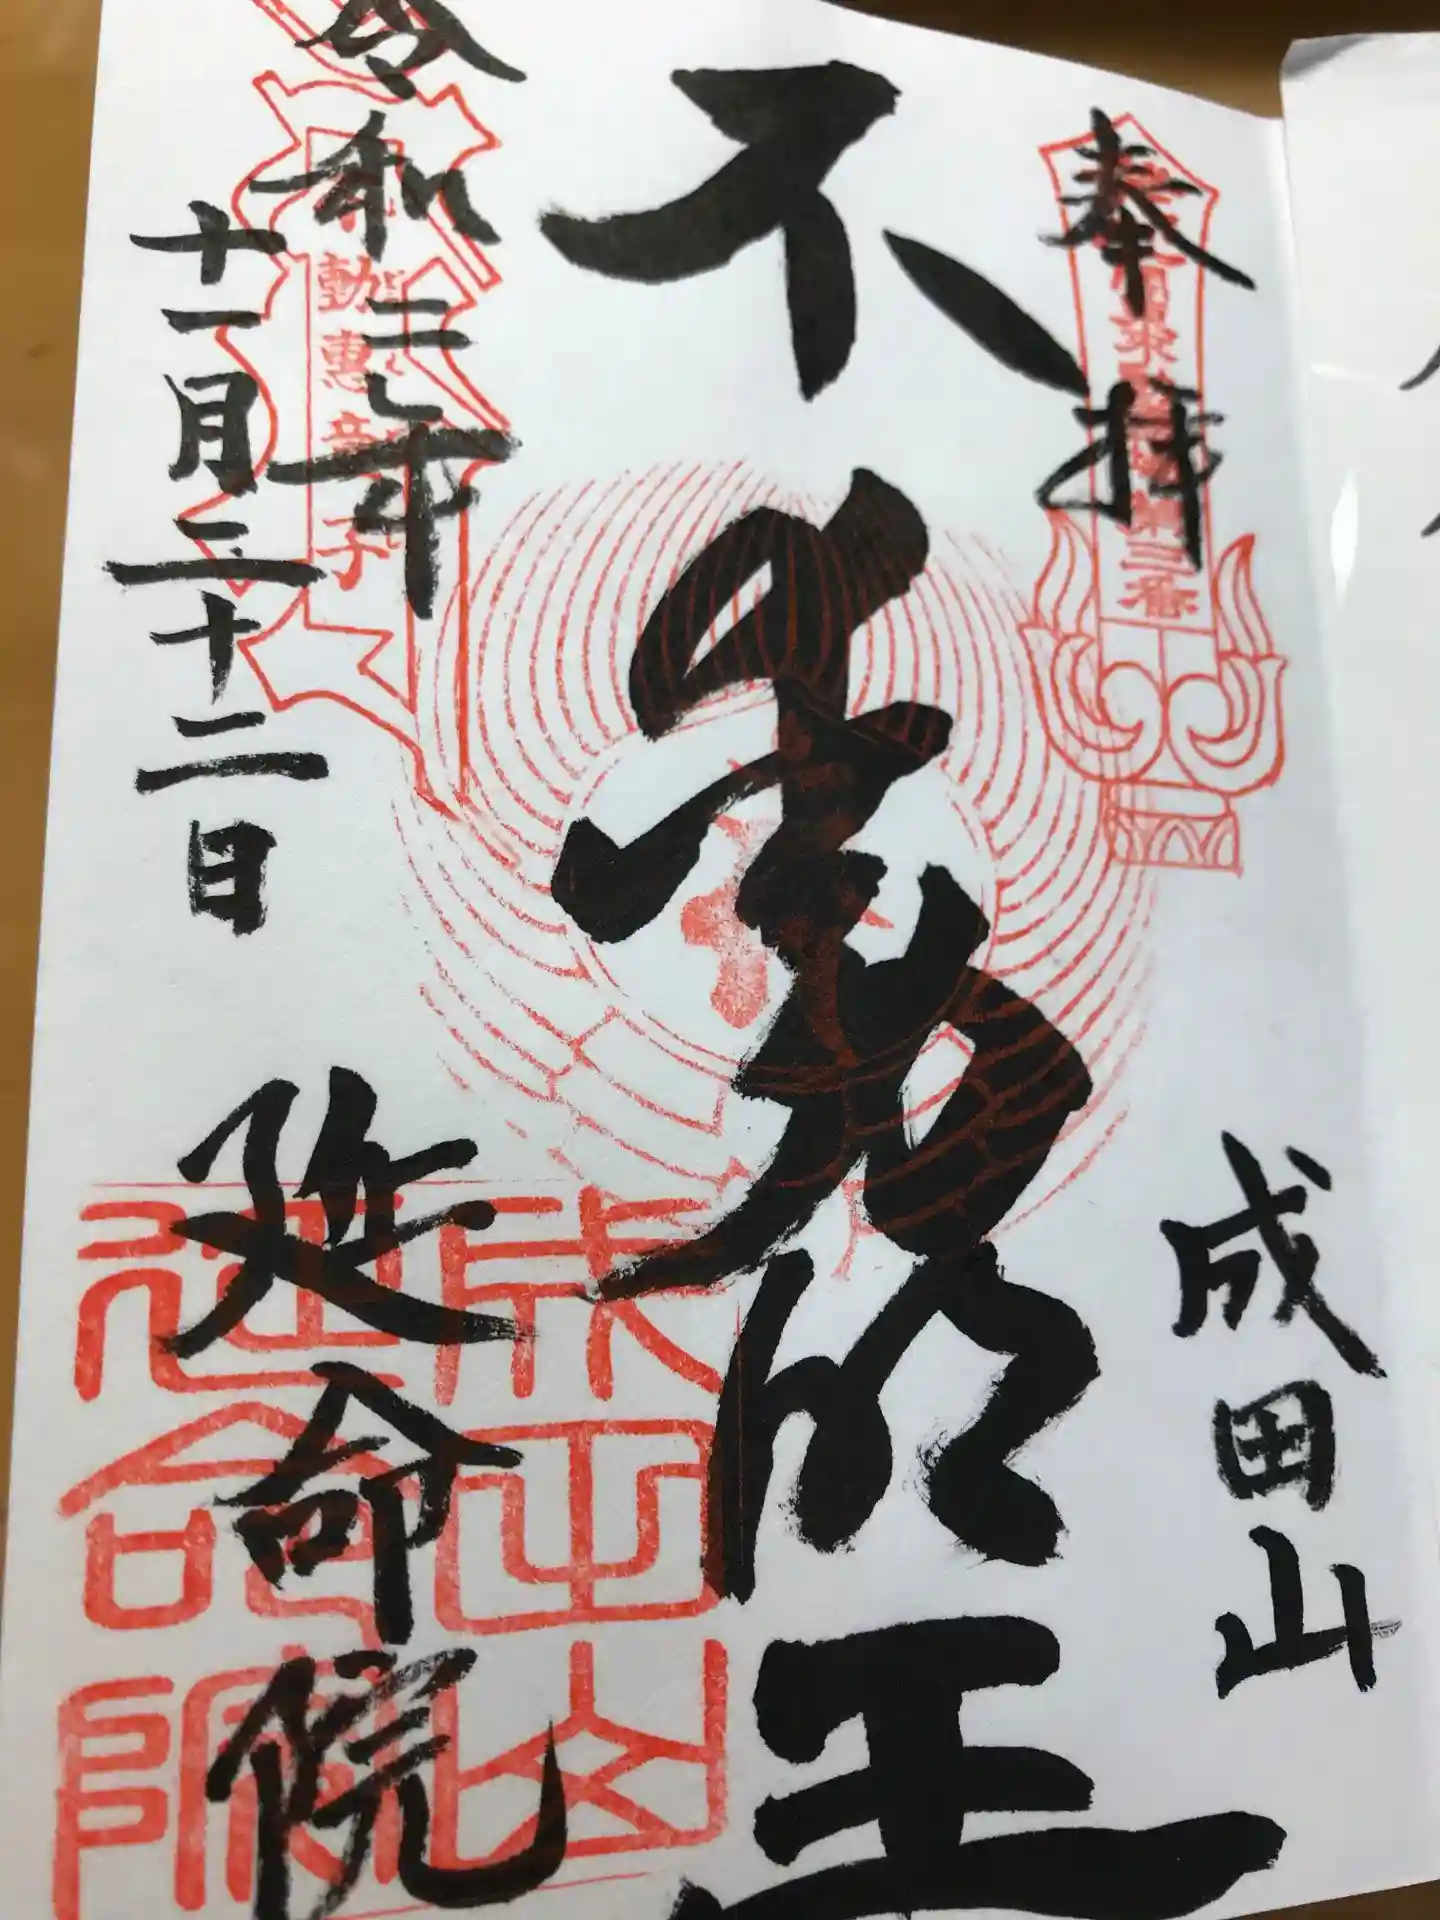 奉拝
第三番
成田山
不動明王
令和二年
動惠童子
十一月二十二日
延命院
成田山
延命院